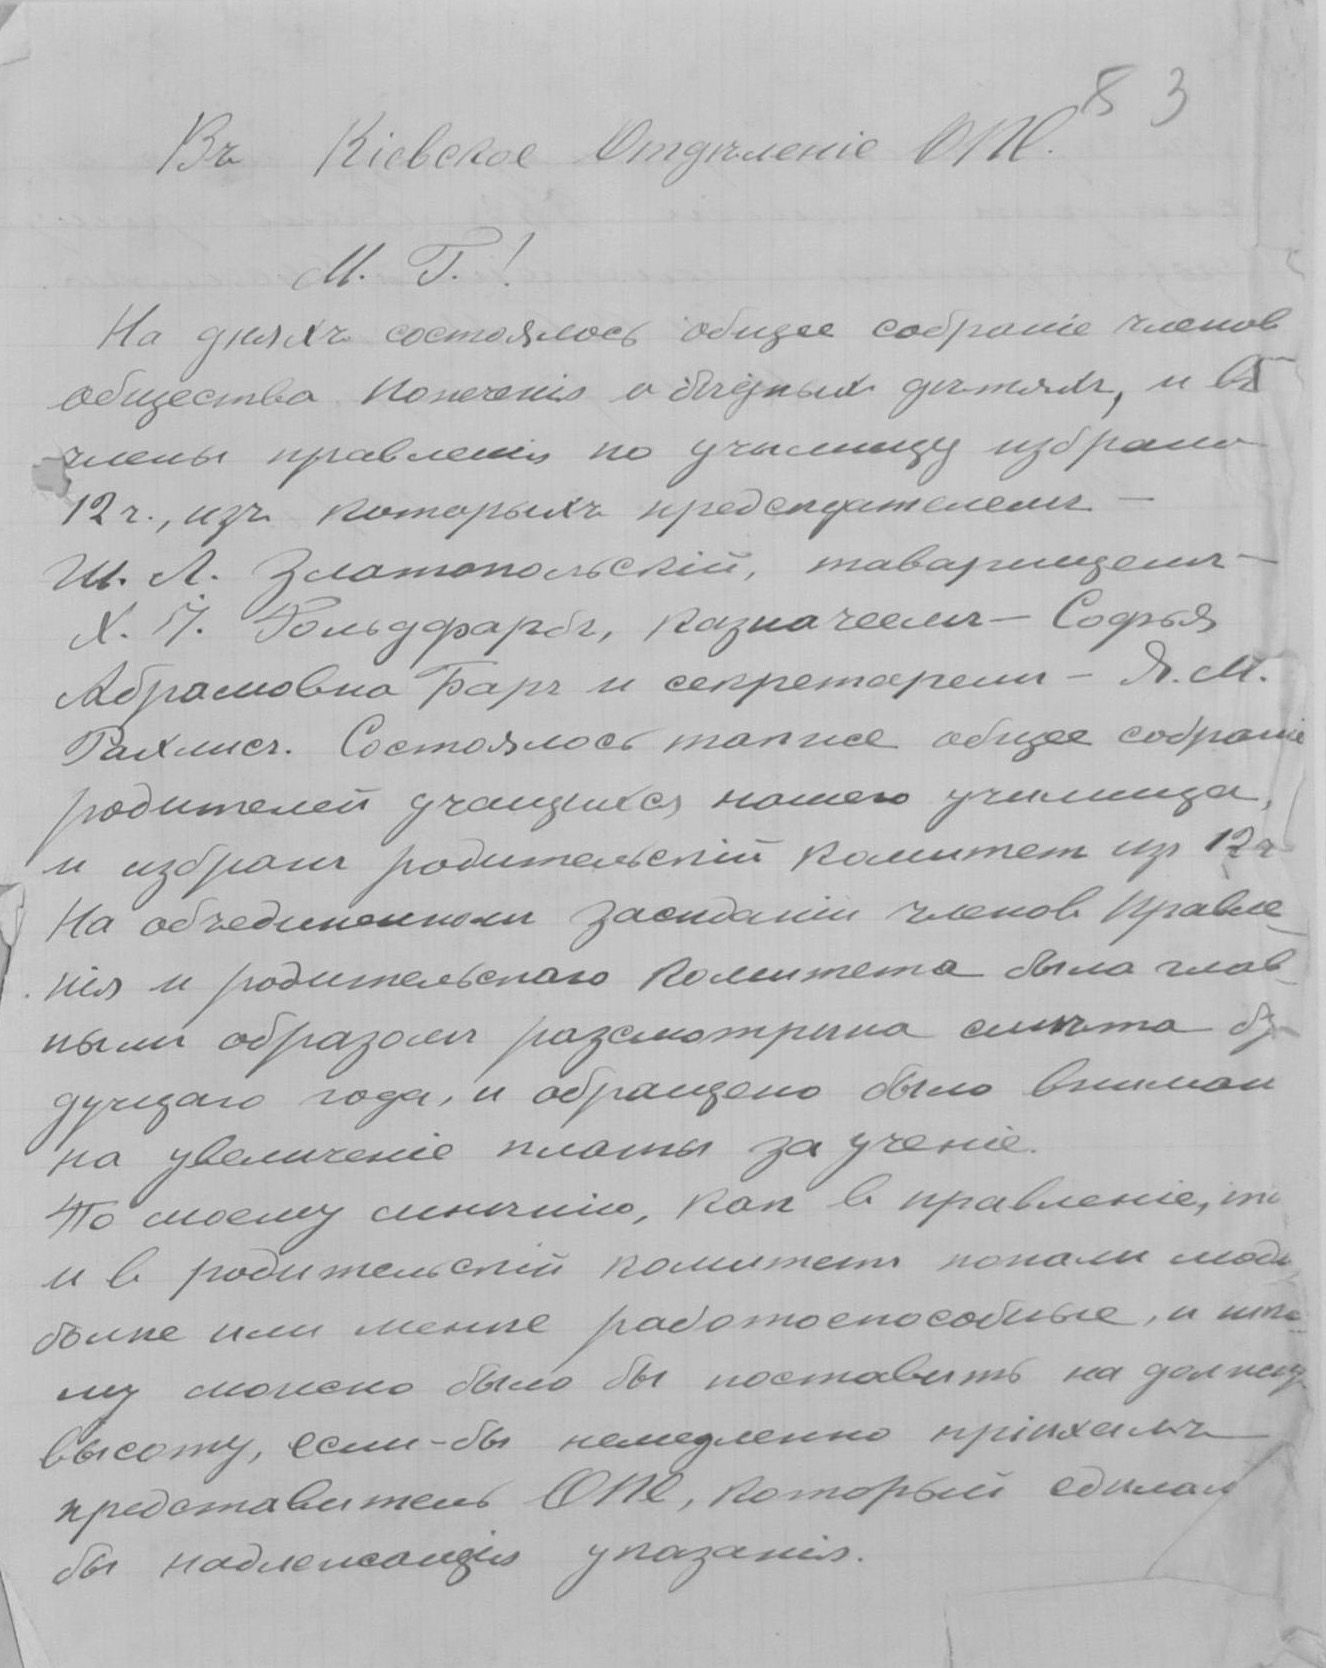 83
Въ Кіевское Отдѣленіе ОПЕ.
М. Г.!
На дняхъ состоялось общее собраніе членов
общества попеченія о бѣдных дѣтяхъ, и въ
члены правленія по училищу избрано
12 ч., изъ которыхъ предсѣдателемъ –
Ш. Л. Златопольскій, таварищемъ –
Х. Гольдфарбъ, казначеемъ – Софья
Абрамовна Баръ и секретарем – Я. М.
Рахлисъ. Состоялось также общее собраніе
родителей учащихся нашего училища,
и избранъ родительскій комитет из 12 ч
На объединенном засѣданіи членов правле-
нія и родительскаго комитета была глав-
ным образомъ разсмотрѣна смѣта бу-
дущаго года, и обращено было вниман
на увеличеніе платы за ученіе.
По моему мнѣнію, как в правленіе, та
и в родительскій комитетъ попали люди
болѣе или менѣе работоспособные, и шко-
лу можно было бы поставить на должну
высоту, если-бы немедленно пріѣхалъ
представитель ОПЕ, который сдѣлал
бы надлежащія указанія.